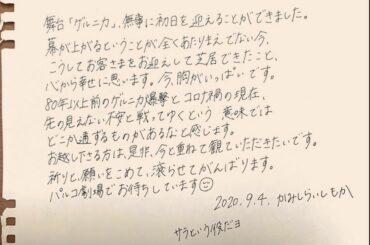 舞台「ゲルニカ」、無事に初日を迎えることができました。
幕が上がるということが全くあたりまえでない今、
こうしてお客さまをお迎えして芝居できたこと、
心から幸せに思います。今、胸がいっぱいです。
80年以上前のゲルニカ爆撃とコロナ禍の現在、
先の見えない不安と戦ってゆくという意味では
どこか通ずるものがあるなと感じます。
お越し下さる方は、是非、今と重ねて観ていただきたいです。
祈りと、願いをこめて、滾らせてがんばります。
パルコ劇場でお待ちしています☺
2020.9.4. かみしらいしもか
サラという役だヨ